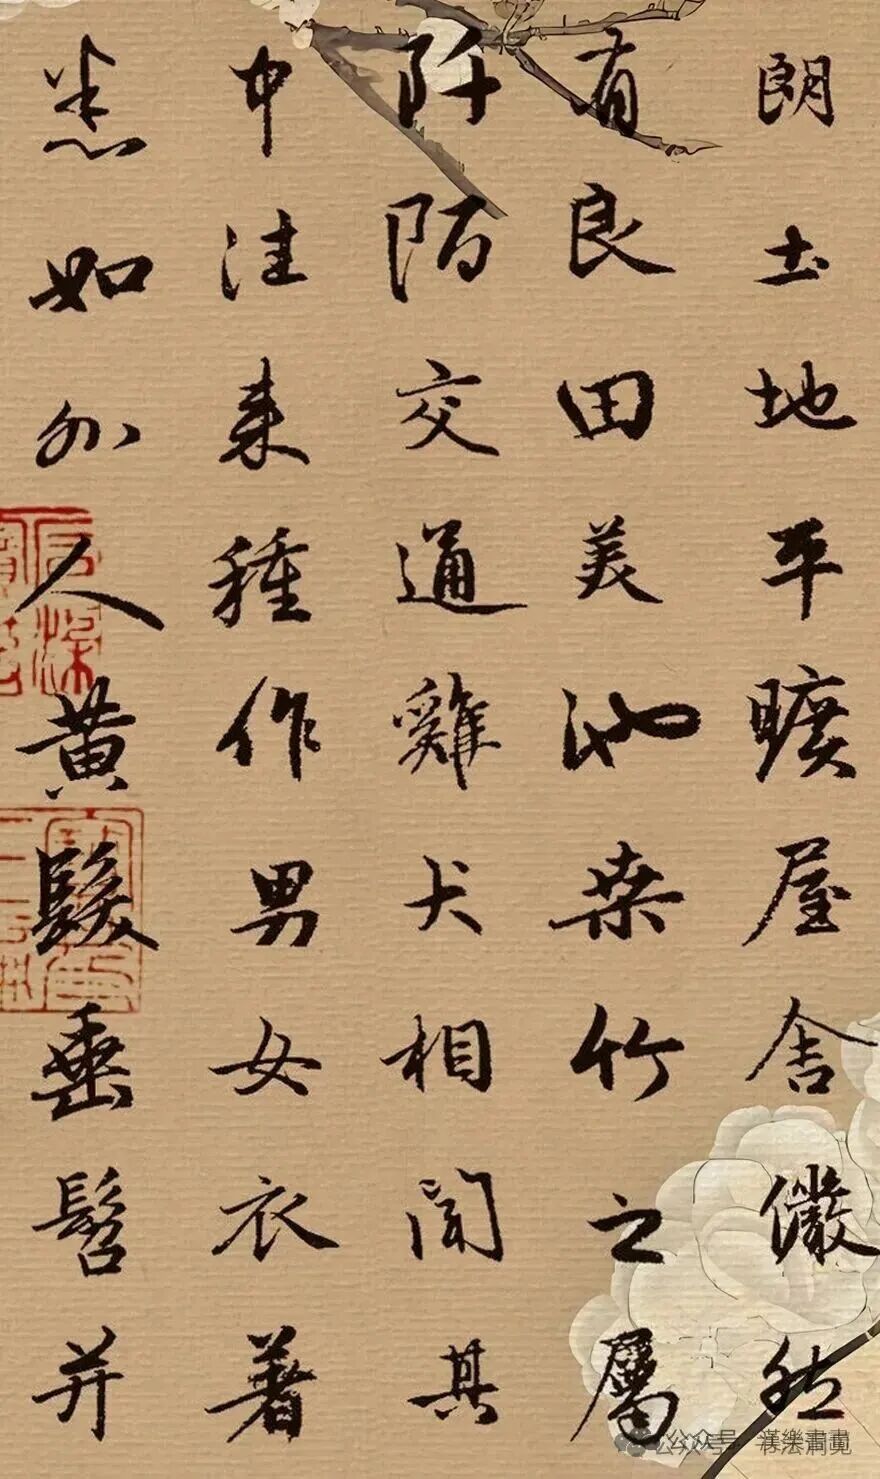 朗土地平曠屋舍儼然
有良田美池桑竹之屬
阡陌交通雞犬相聞其
中往來種作男女衣著
悉如外人黃髮垂髫并
公众号